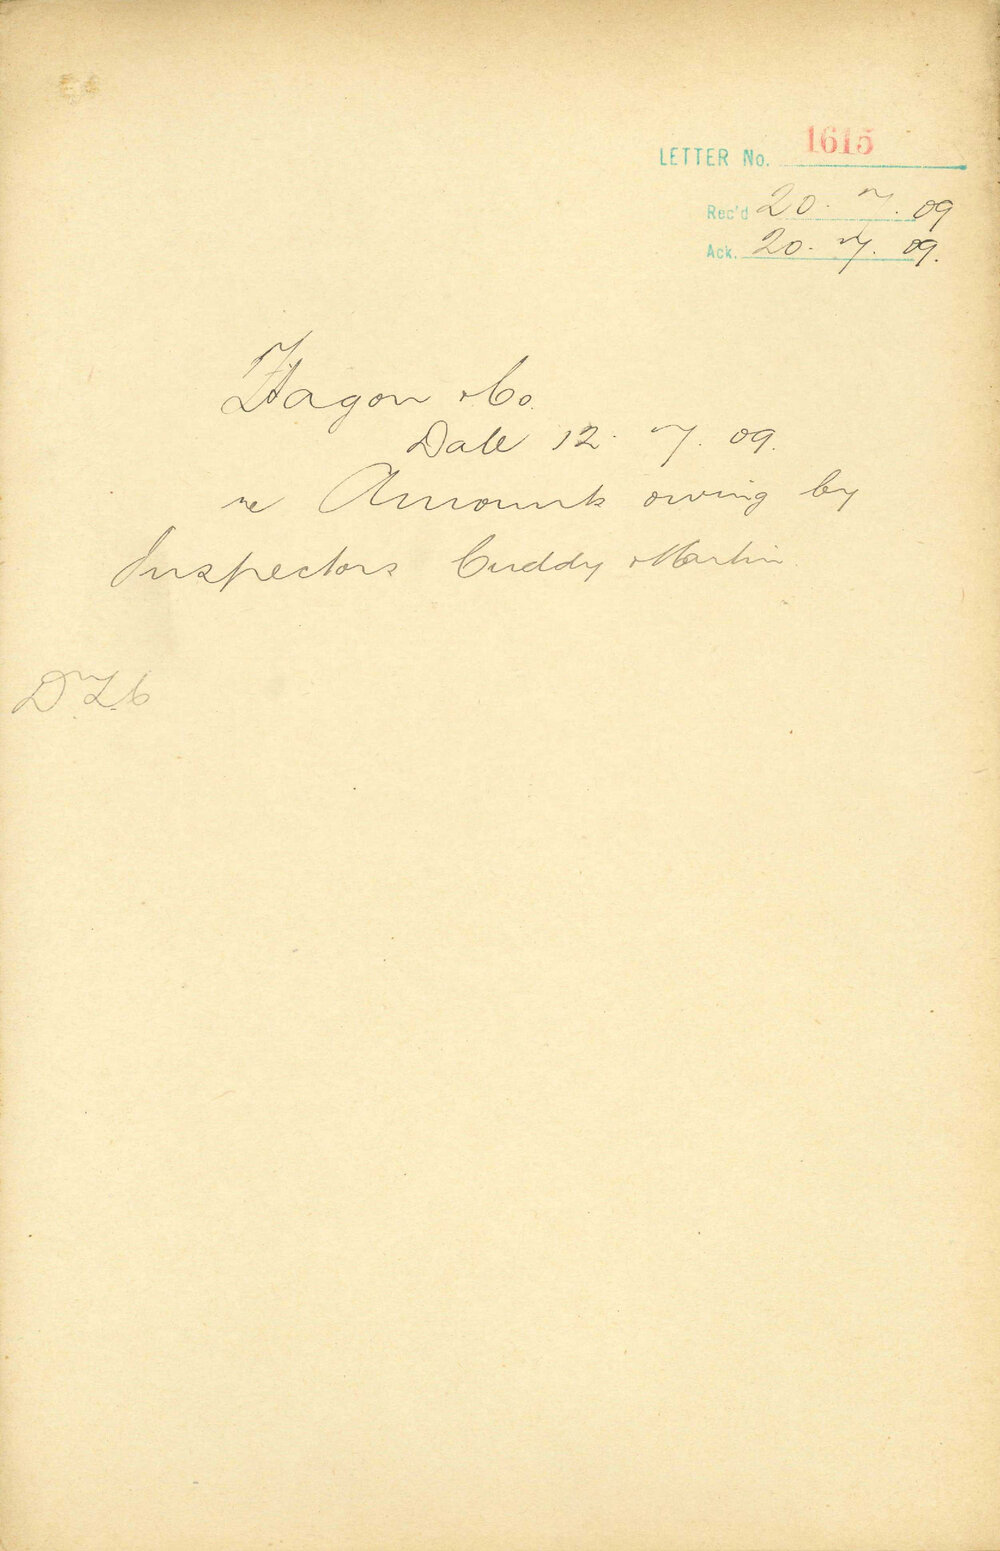 LETTER No. 1615
Rec'd 20. 7. 09
Ack. 20. 7. 09.
Hagon & Co.
Date 12. 7. 09.
re Amounts owing by
Inspectors Cuddy & Martin